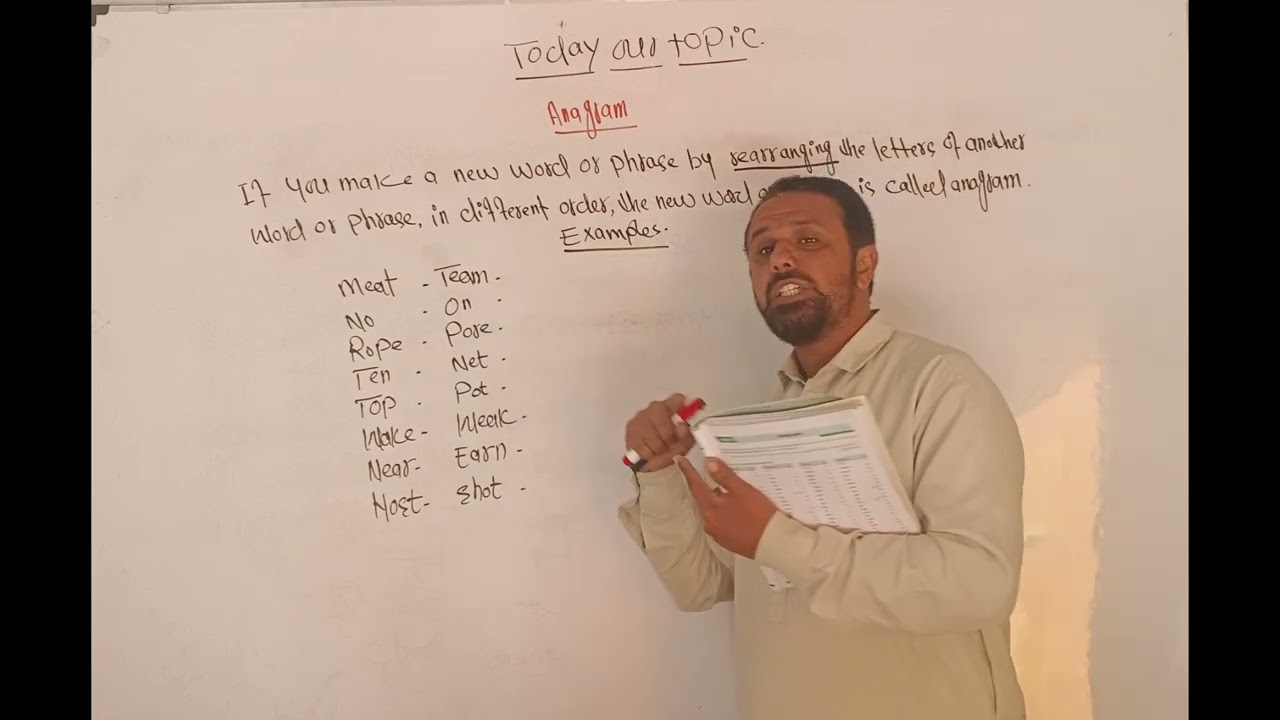 Today our topic.
Anagram
If you make a new word or phrase by rearranging the letters of another
word or phrase, in different order, the new word is called anagram.
Examples.
Meat - Team.
No - On.
Rope - Pore.
Ten - Net.
TOP - Pot.
Wake - Weak.
Near - Earn.
Host - Shot.